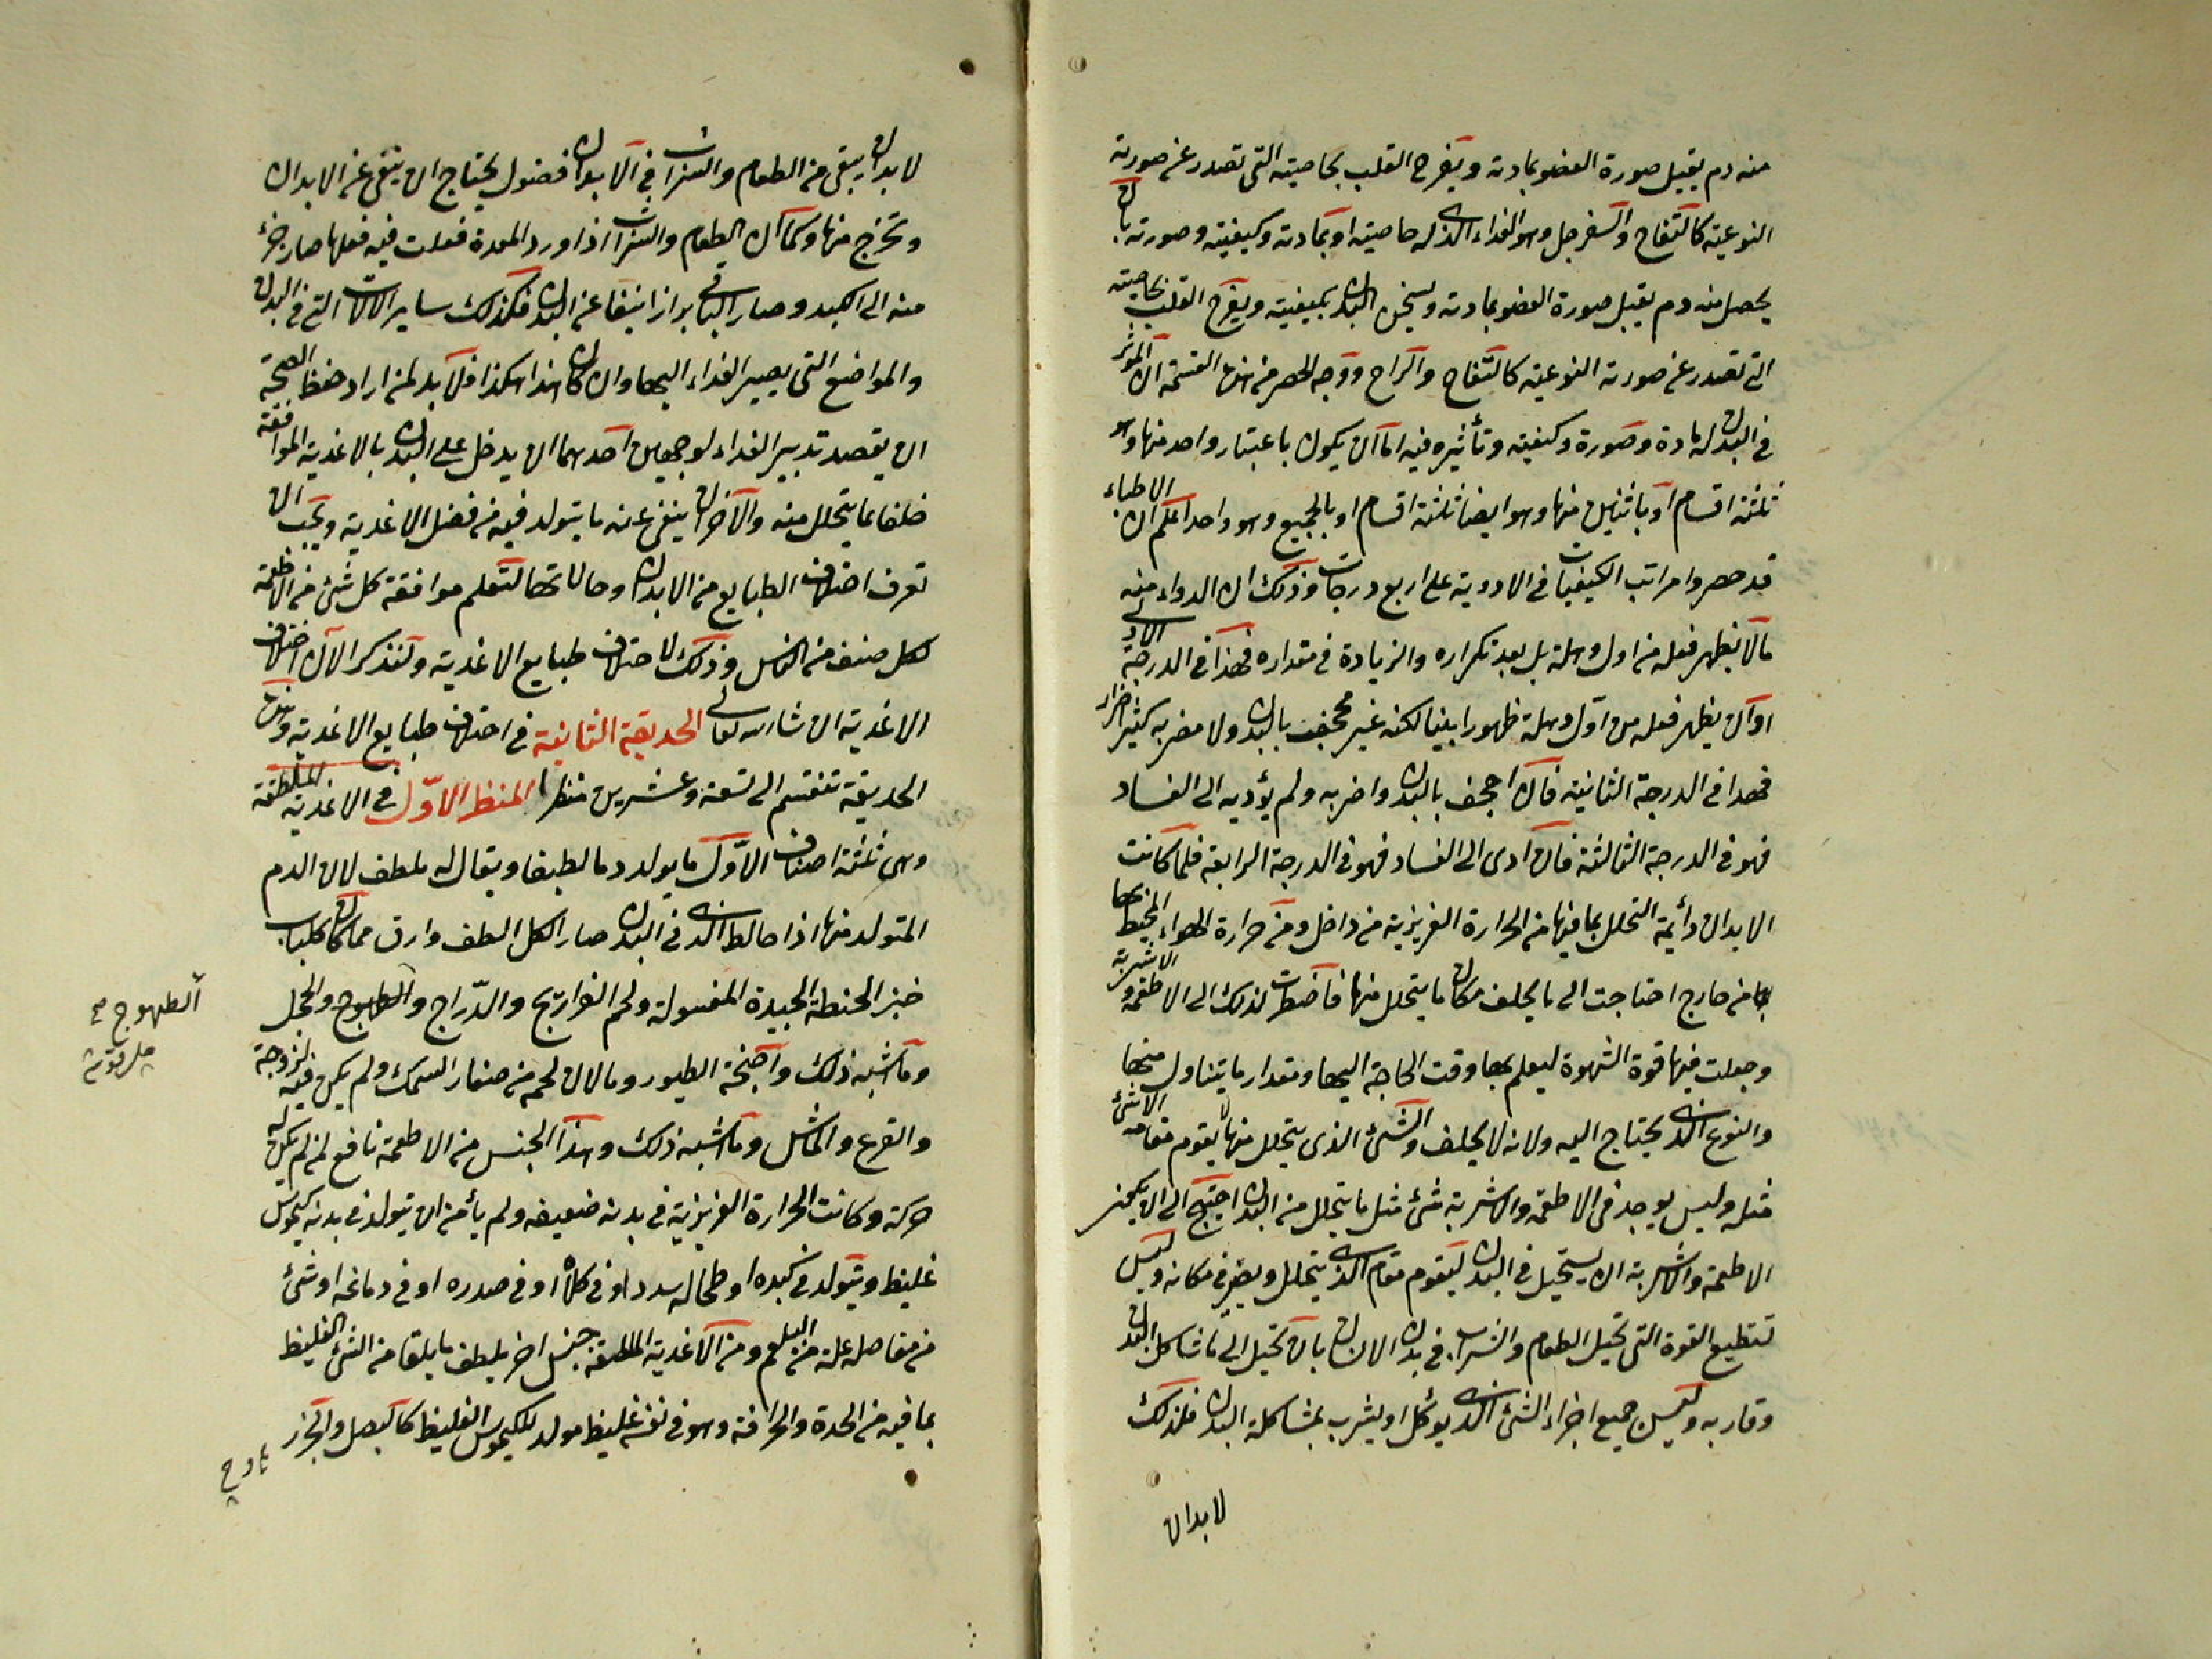 منه دم يقبل صورة العضو بمادته ويفرح القلب بخاصيته التى تصدر عن صورته
النوعية كالتفاح والسفرجل وهو الغذاء الذى له خاصيته او بمادته وكيفيته وصورته بان
يحصل منه دم يقبل صورة العضو بمادته ويسخن البدن بكيفيته ويفرح القلب بخاصيته
التى تصدر عن صورته النوعية كالتفاح والراح ووجه الحصر من هذه القسمة ان المؤثر
فى البدن له مادة وصورة وكيفية وتأثيره فيه اما ان يكون باعتبار واحد منها وهو
ثلثة اقسام او باثنين منها وهو ايضا ثلثة اقسام او بالجميع وهو واحد اعلم ان الاطباء
قد حصروا مراتب الكيفيات فى الادوية على اربع درجات وذلك ان الدواء منه
ما لا يظهر فعله من اول وهلة بل بعد تكراره والزيادة فى مقداره فهذا فى الدرجة الاولى
او ان يظهر فعله من اول وهلة ظهورا بينا لكنه غير مجحف بالبدن ولا مضر به كثير اضرار
فهذا فى الدرجة الثانية فان اجحف بالبدن واضر به ولم يؤديه الى الفساد
فهو فى الدرجة الثالثة فان ادى الى الفساد فهو فى الدرجة الرابعة فلما كانت
الابدان دائمة التحلل بما فيها من الحرارة الغريزية من داخل ومن حرارة الهواء المحيط بها
من خارج احتاجت الى ما يخلف مكان ما يتحلل منها فاضطرت لذلك الى الاطعمة والاشربة
وجعلت فيها قوة الشهوة ليعلم بها وقت الحاجة اليها ومقدار ما يتناول منها
والنوع الذى يحتاج اليه ولانه لا يخلف الشئ الذى يتحلل منها لا يقوم مقامه الا شئ
مثله وليس يوجد فى الاطعمة والاشربة شئ مثل ما يتحلل من البدن احتيج الى ان
الاطعمة والاشربة ان يستحيل فى البدن ليقوم مقام الذى يتحلل ويصير فى مكانه وليس
تستطيع القوة التى تحيل الطعام والشراب فى بدن الانسان بان تحيل الى ما شاكل البدن
وقاربه وليس جميع اجزاء الشئ الذى يؤكل او يشرب بمشاكلة البدن فلذلك
لابدان
لابدان يبقى من الطعام والشراب فى الابدان فضول يحتاج ان ينقى عن الابدان
وتخرج منها وكما ان الطعام والشراب اذا ورد المعدة فعلت فيه فعلها صار جزء
منه الى الكبد وصار الباقى برازا ينقا عن البدن فكذلك ساير الالات التى فى البدن
والمواضع التى يصير الغذاء اليها وان كان هذا هكذا فلا بد لمن اراد حفظ الصحة
ان يقصد تدبير الغذاء لوجهين احدهما ان يدخل على البدن بالاغذية الموافقة
خلفا عما يتحلل منه والآخر ان ينفى عنه ما يتولد فيه من فضل الاغذية ويجب ان
تعرف اختلاف الطبايع من الابدان وحالاتها لتعلم موافقة كل شئ من الاطعمة
لكل صنف من الناس وذلك لاختلاف طبايع الاغذية ولنذكر الآن اختلاف
الاغذية ان شا الله تعالى الحديقة الثانية فى اختلاف طبايع الاغذية وهذه
الحديقة تنقسم الى تسعة وعشرين منظرا المنظر الاول فى الاغذية الملطفة
وهى ثلثة اصناف الاول ما يولد دما لطيفا ويقال له ملطف لان الدم
المتولد منها اذا خالط الذى فى البدن صار الكل الطف وارق مما كان كلباب
خبز الحنطة الجيدة المغسولة ولحم الفراريج والدراج والطيهوج والحجل
وما اشبه ذلك واجنحة الطيور وما لان لحمه من صغار السمك ولم يكن فيه لزوجة
والقرع والماش وما اشبه ذلك وهذا الجنس من الاطعمة نافع لمن لم يكن له
حركة وكانت الحرارة الغريزية فى بدنه ضعيفة ولم يأمن ان يتولد فى بدنه كيموس
غليظ ويتولد فى كبده او طحاله سدد او فى كلاه او فى صدره او فى دماغه او شئ
من مفاصله علة من البلغم ومن الاغذية الملطفة جنس اخر يلطف ما يلقا من الشئ الغليظ
بما فيه من الحدة والحرافة وهو فى نفسه غليظ مولد للكيموس الغليظ كالبصل والجزر
الطهوج صح